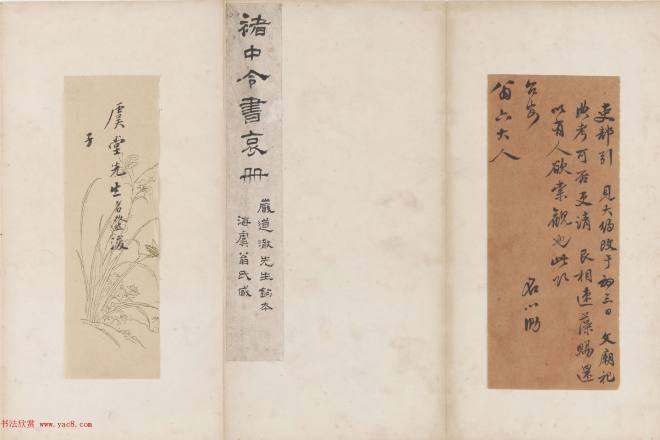 吏部引 見大約改于初三日 文廟祀
典考可否更请 良相速藻賜還
以有人欲索観也此叩
台安
六大人
名心泐
褚中令書哀冊
嚴道澈先生鉤本
海虞翁氏藏
虞堂先生
子
书法欣赏 www.yac8.com